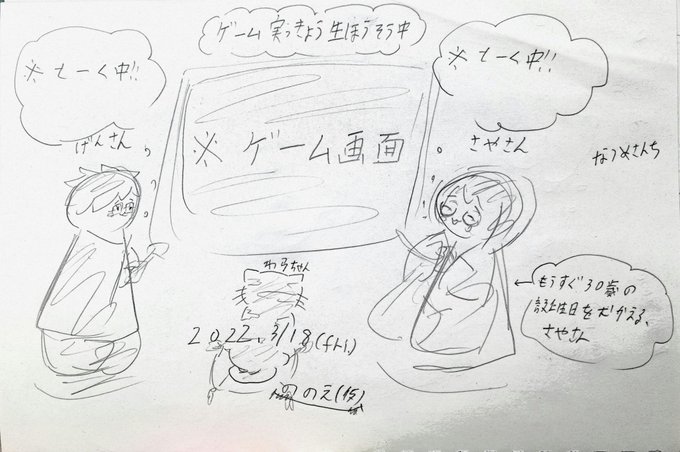 ゲーム実っきょう生ほうそう中
※ とーく中!!
※ とーく中!!
げんさん
※ ゲーム画面
さやさん
なつめさんち
わらちゃん
2022.3/18(fri)
←もうすぐ30歳の
誕生日をむかえる、
さやさん
のえ(仮)